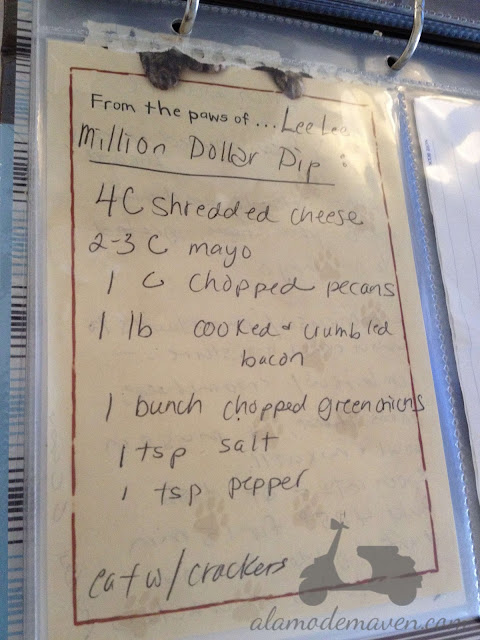 From the paws of... Lee Lee
Million Dollar Dip :
4C shredded cheese
2-3 C mayo
1 C chopped pecans
1 lb cooked & crumbled
bacon
1 bunch chopped green onions
1 tsp salt
1 tsp pepper
eat w/ crackers
alamodemaven.com